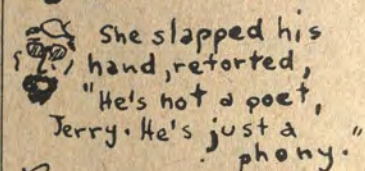 She slapped his
hand, retorted,
"He's not a poet,
Jerry. He's just a
phony."